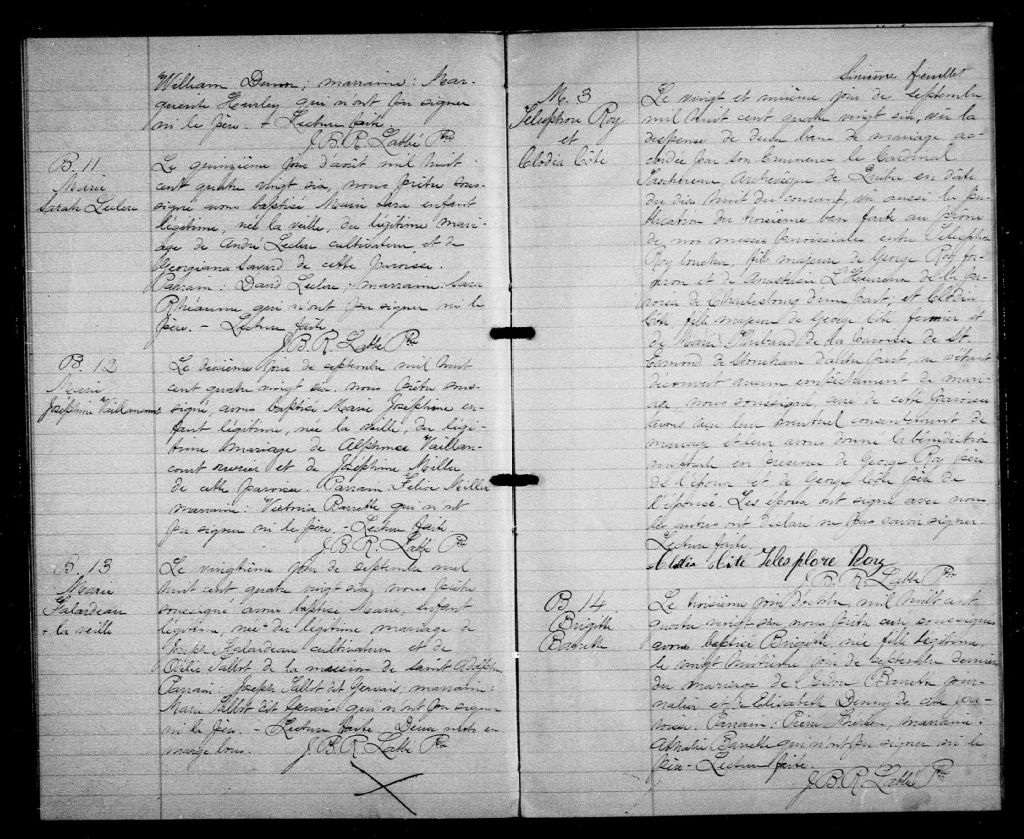 William Dunn; marraine: Mar-
guerite Hurley qui n'ont pu signer
ni le père. + Lecture faite.
J. B. R. Labbé Ptre
B. 11
Marie
Sarah Leclerc
Le quinzième jour d'août mil huit
cent quatre vingt six, nous prêtre sous-
signé avons baptisé Marie Sara enfant
légitime, née la veille, du légitime mari-
age de André Leclerc cultivateur et de
Georgiana Savard de cette paroisse.
Parrain: David Leclerc; marraine: Sara
Rhéaume qui n'ont pu signer ni le
père. - Lecture faite.
J. B. R. Labbé Ptre
B. 12
Marie
Joséphine Vaillancourt
Le dixième jour de septembre mil huit
cent quatre vingt six, nous prêtre sous-
signé, avons baptisé Marie Joséphine en-
fant légitime, née la veille, du légi-
time mariage de Alphonse Vaillan-
court ouvrier et de Joséphine Miller
de cette paroisse. Parrain: Félix Miller
marraine: Victoria Barrette qui n'ont
pu signer ni le père. - Lecture faite.
J. B. R. Labbé Ptre
B. 13
Marie
Falardeau
+ la veille
Le vingtième jour de septembre mil
huit cent quatre vingt six, nous prêtre
soussigné avons baptisé Marie, enfant
légitime, née + du légitime mariage de
Joseph Falardeau cultivateur et de
Odélie Tallot de la mission de Saint Adolphe
Parrain: Joseph Tallot dit Gervais; marraine:
Marie Tallot dit Gervais qui n'ont pu signer
ni le père. - Lecture faite. Deux mots en
marge bons.
J. B. R. Labbé Ptre
feuillet
M. 3
Télesphore Roy
et
Clodia Côté
Le vingt et unième jour de septembre
mil huit cent quatre vingt six, vu la
dispense de deux bans de mariage ac-
cordée par Son Eminence le Cardinal
Taschereau, Archevêque de Québec en date
du dix huit du courant, vu aussi la pu-
blication du troisième ban faite au prône
de nos messes paroissiales entre Télesphore
Roy, fils majeur de George Roy for-
geron et de Anastasie L'Heureux de la pa-
roisse de Charlesbourg d'une part; et Clodia
Côté, fille majeure de George Côté fermier et
de Marie de la paroisse de St.
Edmond de Stoneham d'autre part, ne s'étant
découvert aucun empêchement de mari-
age, nous soussigné, curé de cette paroisse
avons reçu leur mutuel consentement de
mariage et leur avons donné la bénédiction
nuptiale en présence de George Roy père
de l'époux et de George Côté père de
l'épouse. Les époux ont signé avec nous
les autres ont déclaré ne pas savoir signer.
Lecture faite.
Clodia Côté Télesphore Roy
J. B. R. Labbé Ptre
B. 14
Brigitte
Barrette
Le troisième jour d'octobre, mil huit cent
quatre vingt six nous prêtre curé soussigné
avons baptisé Brigitte, née fille légitime
le vingt huitième jour de septembre dernier
du mariage de Barrette jour-
nalier et de Elisabeth Denny de cette pa-
roisse. Parrain: Pierre; marraine:
Athalie Barrette qui n'ont pu signer ni le
père - Lecture faite.
J. B. R. Labbé Ptre